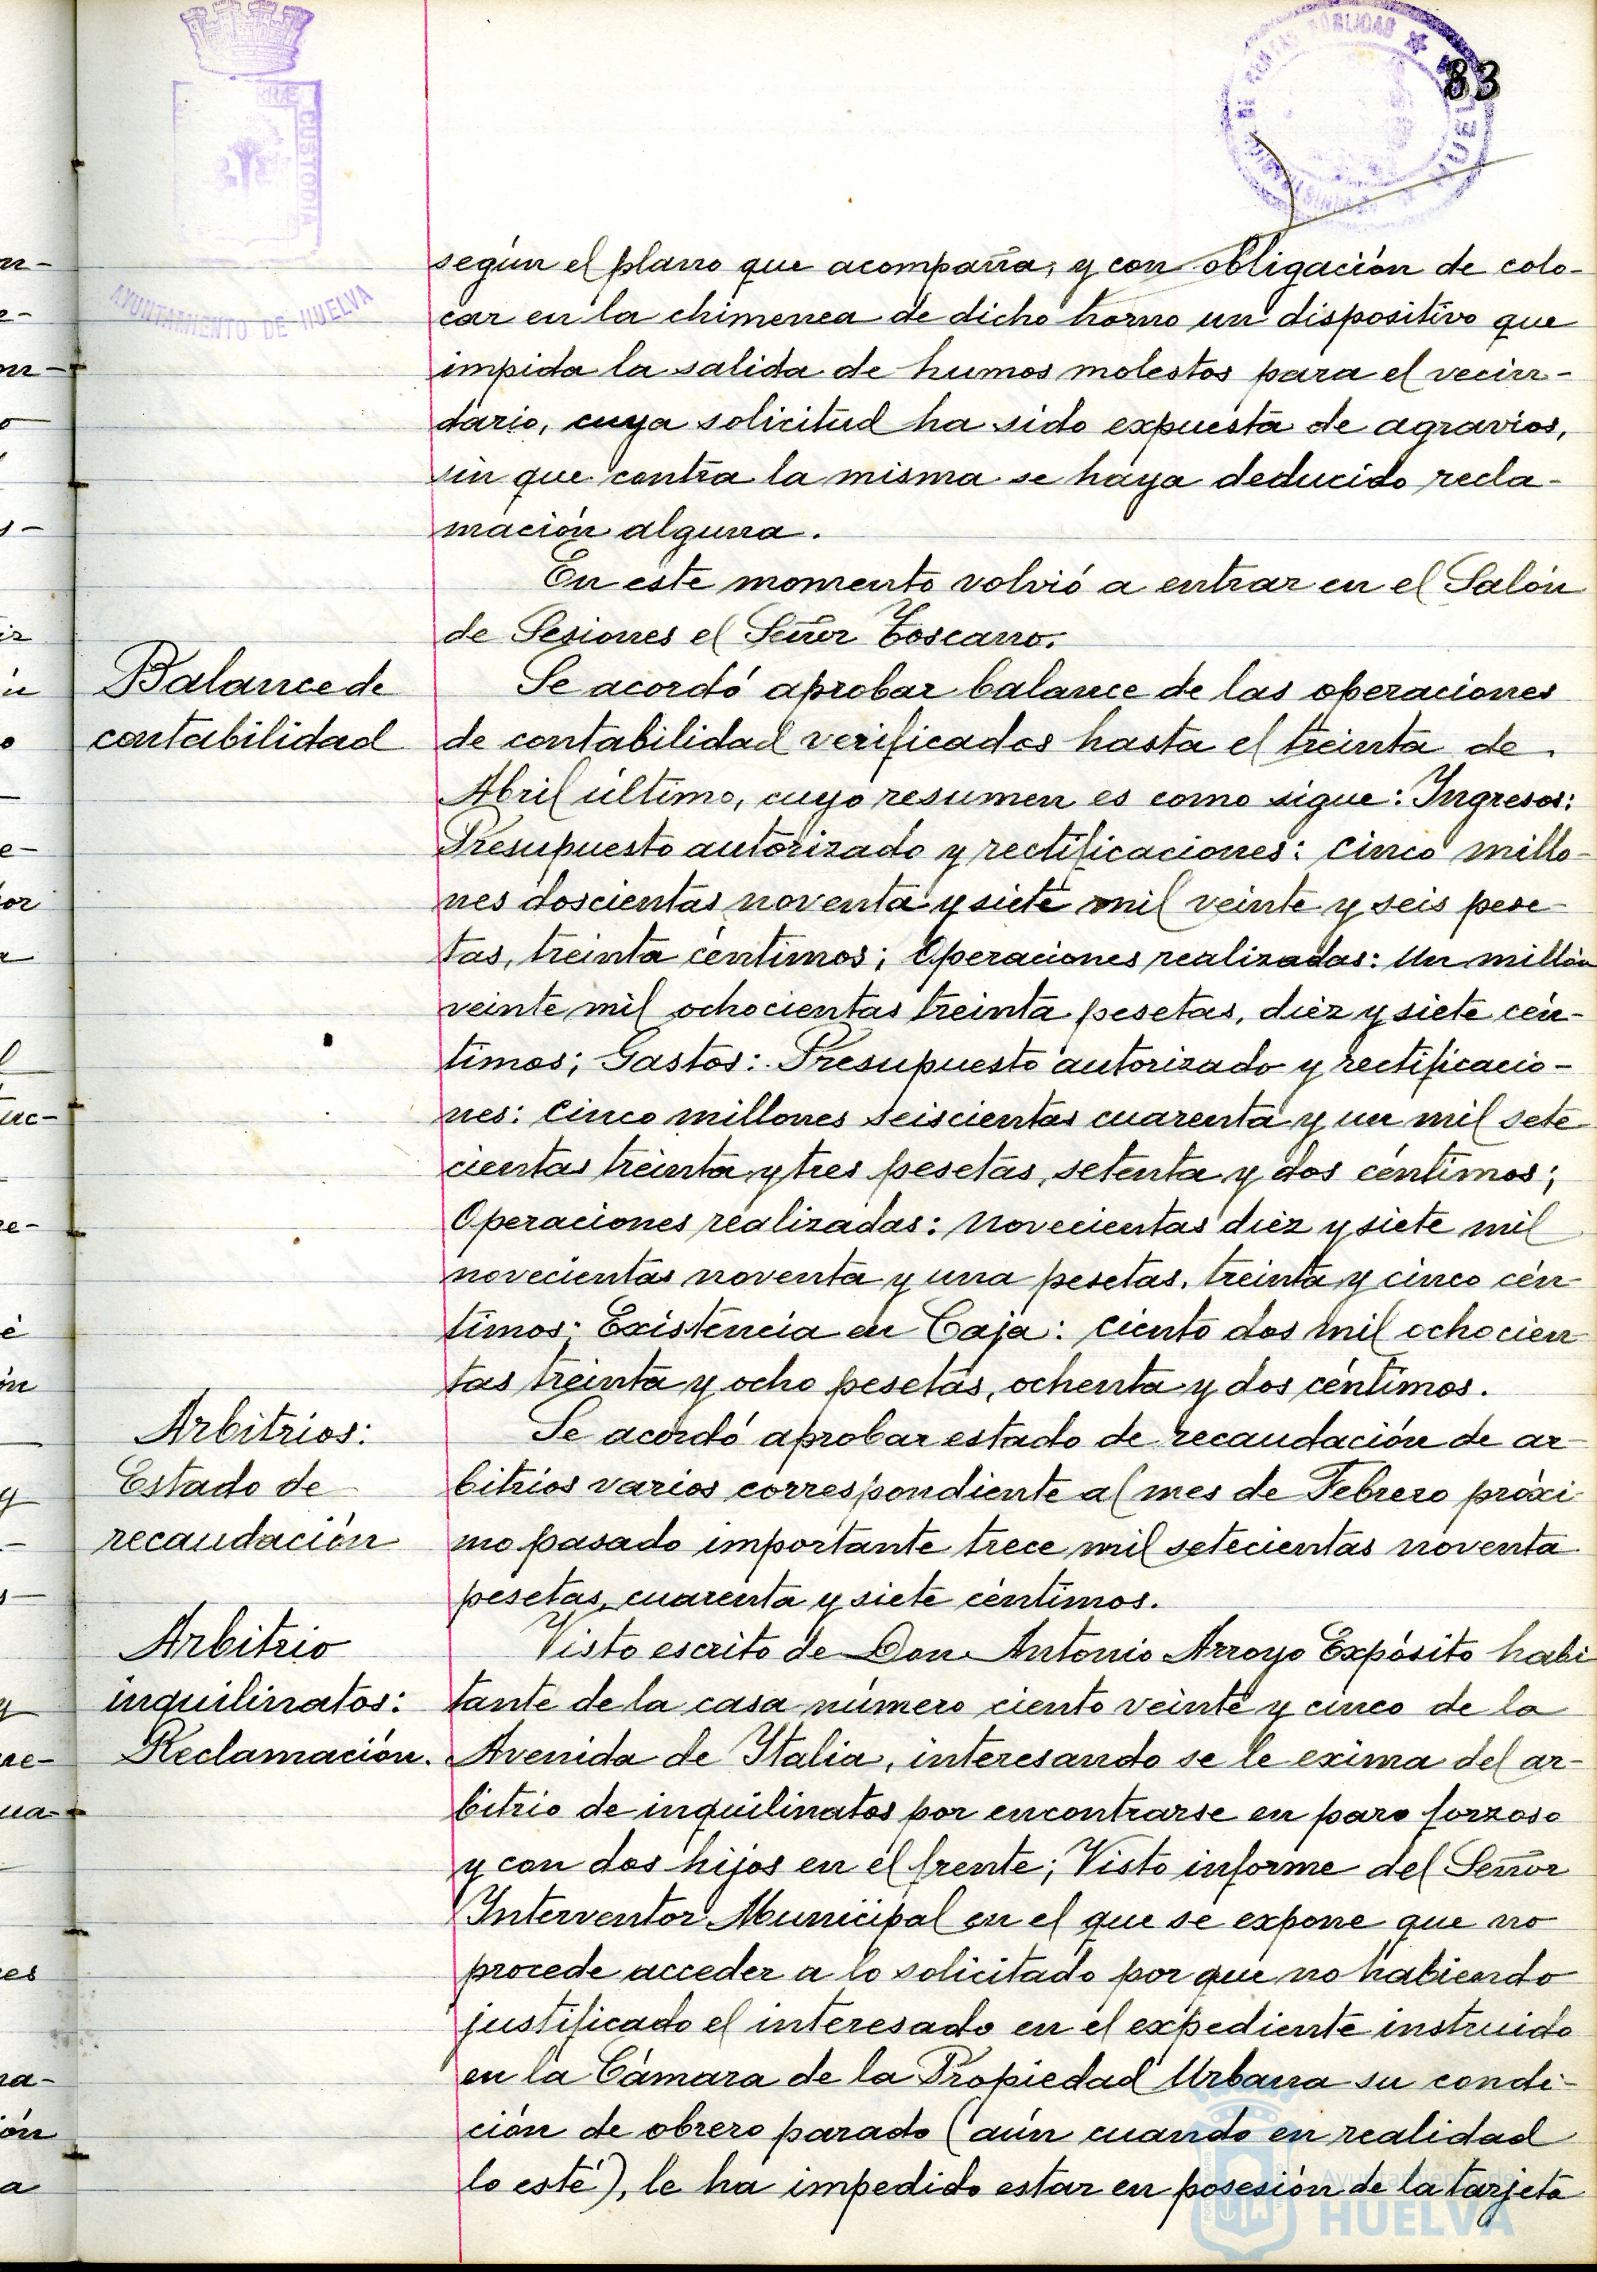 83
AYUNTAMIENTO DE HUELVA
CUSTODIA
según el plano que acompaña, y con obligación de colo-
car en la chimenea de dicho horno un dispositivo que
impida la salida de humos molestos para el vecin-
dario, cuya solicitud ha sido expuesta de agravios,
sin que contra la misma se haya deducido recla-
mación alguna.
En este momento volvió a entrar en el Salón
de Sesiones el Señor Toscano.
Balance de
contabilidad
Se acordó aprobar balance de las operaciones
de contabilidad verificados hasta el treinta de
Abril último, cuyo resumen es como sigue: Ingresos:
Presupuesto autorizado y rectificaciones: cinco millo-
nes doscientas noventa y siete mil veinte y seis pese-
tas, treinta céntimos; Operaciones realizadas: Un millón
veinte mil ochocientas treinta pesetas, diez y siete cén-
timos; Gastos: Presupuesto autorizado y rectificacio-
nes: cinco millones seiscientas cuarenta y un mil sete
cientas treinta y tres pesetas, setenta y dos céntimos;
Operaciones realizadas: novecientas diez y siete mil
novecientas noventa y una pesetas, treinta y cinco cén-
timos; Existencia en Caja: ciento dos mil ochocien
tas treinta y ocho pesetas, ochenta y dos céntimos.
Arbitrios:
Estado de
recaudación
Se acordó aprobar estado de recaudación de ar-
bitrios varios correspondiente al mes de Febrero próxi
mo pasado importante trece mil setecientas noventa
pesetas, cuarenta y siete céntimos.
Arbitrio
inquilinatos:
Reclamación.
Visto escrito de Don Antonio Arroyo Expósito habi
tante de la casa número ciento veinte y cinco de la
Avenida de Italia, interesando se le exima del ar-
bitrio de inquilinatos por encontrarse en paro forzoso
y con dos hijos en el frente; Visto informe del Señor
Interventor Municipal en el que se expone que no
procede acceder a lo solicitado por que no habiendo
justificado el interesado en el expediente instruido
en la Cámara de la Propiedad Urbana su condi-
ción de obrero parado (aún cuando en realidad
lo esté), le ha impedido estar en posesión de la tarjeta
Ayuntamiento de
HUELVA